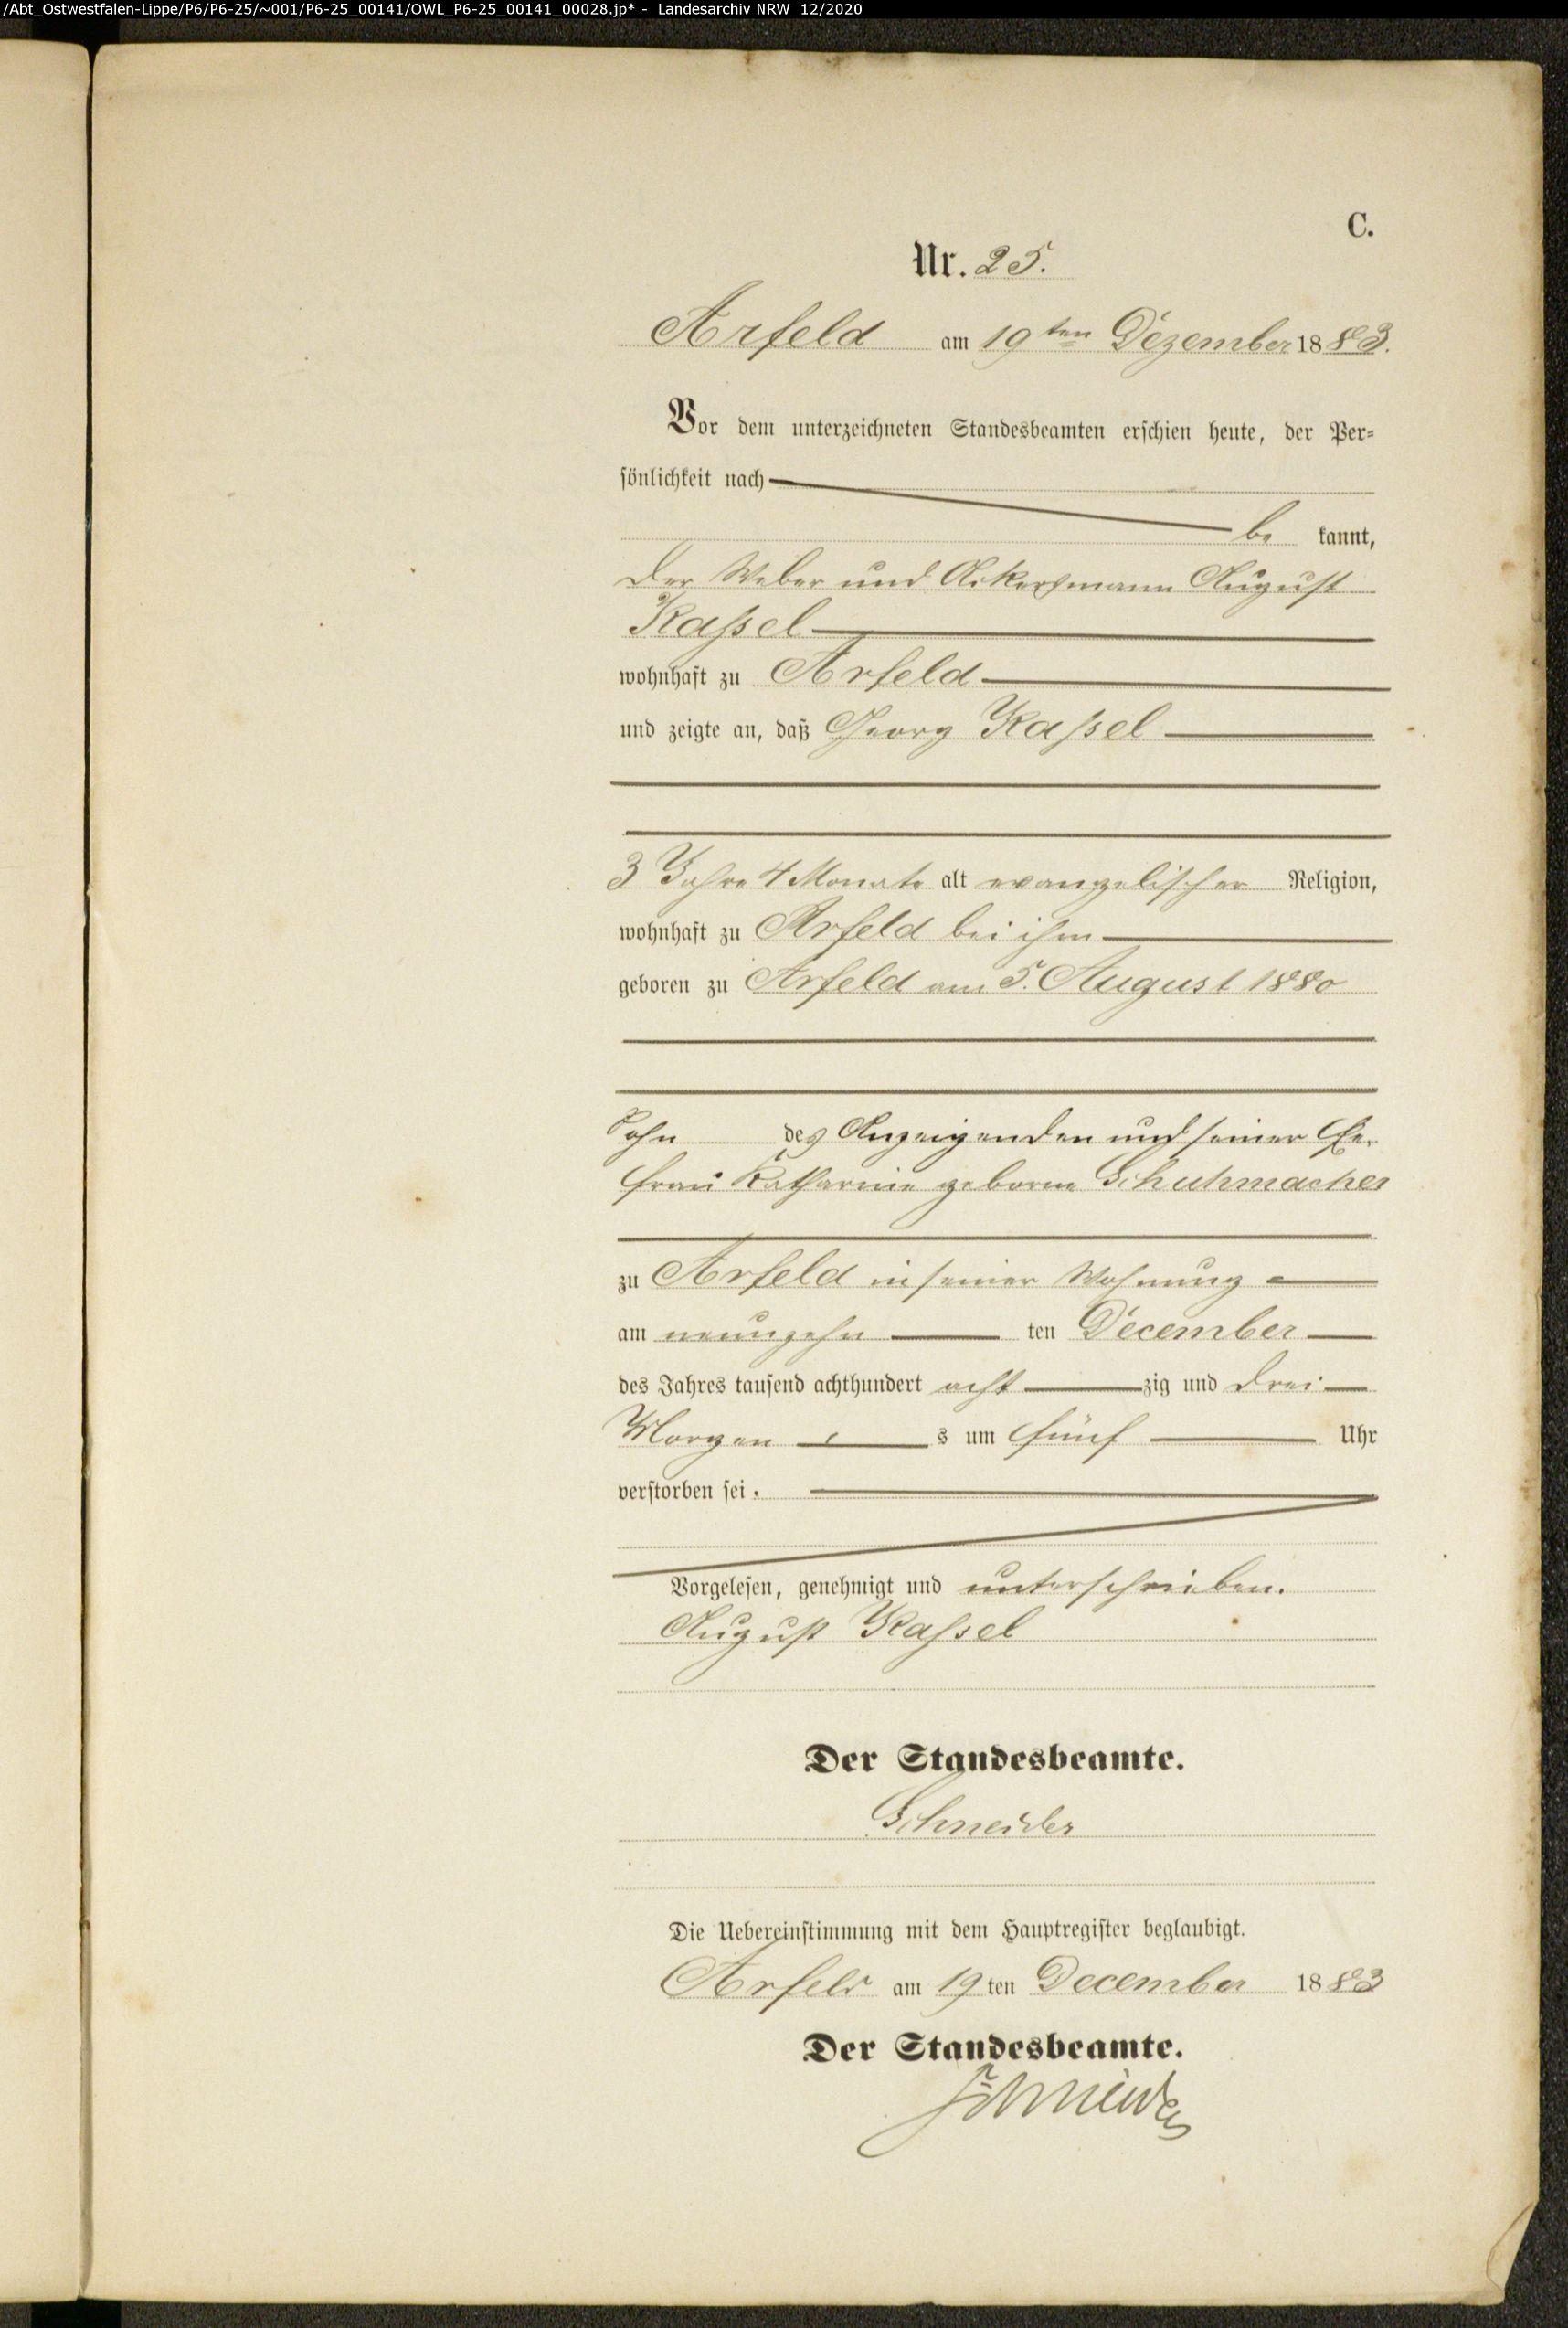 /Abt_Ostwestfalen-Lippe/P6/P6-25/~001/P6-25_00141/OWL_P6-25_00141_00028.jp* - Landesarchiv NRW 12/2020
C.
Nr. 25.
Arfeld am 19ten Dezember 1883.
Vor dem unterzeichneten Standesbeamten erschien heute, der Per-
sönlichkeit nach
be kannt,
der Weber und Ackersmann August
Kaßel
wohnhaft zu Arfeld
und zeigte an, daß Georg Kaßel
3 Jahre 4 Monate alt evangelischer Religion,
wohnhaft zu Arfeld bei ihm
geboren zu Arfeld am 5. August 1880
Sohn des Anzeigenden und seiner Ehe-
frau Katharine geborne Schuhmacher
zu Arfeld in seiner Wohnung
am neunzehn ten December
des Jahres tausend achthundert acht zig und drei
Morgen s um fünf Uhr
verstorben sei.
Vorgelesen, genehmigt und unterschrieben.
August Kaßel
Der Standesbeamte.
Schneider
Die Uebereinstimmung mit dem Hauptregister beglaubigt.
Arfeld am 19 ten December 1883
Der Standesbeamte.
Schneider